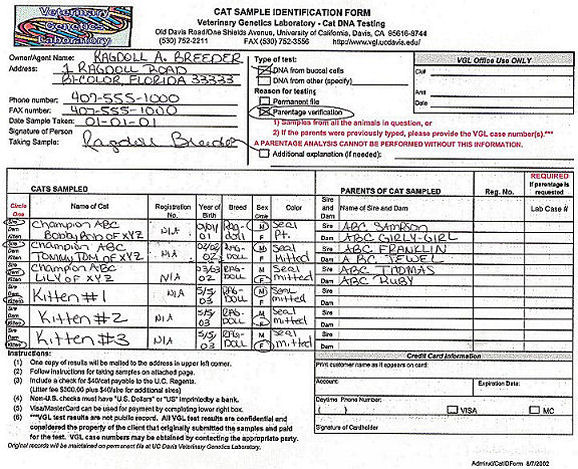 Veterinary
Genetics
Laboratory
CAT SAMPLE IDENTIFICATION FORM
Veterinary Genetics Laboratory - Cat DNA Testing
Old Davis Road/One Shields Avenue, University of California, Davis, CA 95616-8744
(530) 752-2211 FAX (530) 752-3556 http://www.vgl.ucdavis.edu/
Owner/Agent Name: RAGDOLL A. BREEDER
Address: 1 RAGDOLL ROAD
BI-COLOR FLORIDA 33333
Phone number: 407-555-1000
FAX number: 407-555-1000
Date Sample Taken: 01-01-01
Signature of Person
Taking Sample: Ragdoll Breeder
Type of test:
DNA from buccal cells
DNA from other (specify)
Reason for testing
Permanent file
Parentage verification
1) Samples from all the animals in question, or
2) If the parents were previously typed, please provide the VGL case number(s).***
A PARENTAGE ANALYSIS CANNOT BE PERFORMED WITHOUT THIS INFORMATION.
Additional explanation (if needed):
VGL Office Use ONLY
Amt
Date
CATS SAMPLED
Circle One Name of Cat Registration No. Year of Birth Breed Sex Circle Color
Sire Dam Kitten Champion ABC Bobby Ban of XYZ N/A 01/01 01 Rag-doll M F Seal Pt.
Sire Dam Kitten Champion ABC Tommy Tom of XYZ N/A 02/02 02 RAG-DOLL M F Seal Mitted
Sire Dam Kitten Champion ABC LILY OF XYZ N/A 03/03 02 RAG-DOLL M F Seal mitted
Sire Dam Kitten Kitten #1 N/A 5/5 03 RAG-DOLL M F Seal mitted
Sire Dam Kitten Kitten #2 N/A 5/5 03 RAG-DOLL M F Seal mitted
Sire Dam Kitten Kitten #3 N/A 5/5 03 RAG-DOLL M F Seal mitted
PARENTS OF CAT SAMPLED Reg. No. REQUIRED If parentage is requested
Sire and Dam Name of Sire and Dam Lab Case #
Sire ABC SAMPSON
Dam ABC GIRLY-GIRL
Sire ABC FRANKLIN
Dam ABC JEWEL
Sire ABC THOMAS
Dam ABC RUBY
Sire
Dam
Sire
Dam
Sire
Dam
Instructions:
(1) One copy of results will be mailed to the address in upper left corner.
(2) Follow instructions for taking samples on attached page.
(3) Include a check for $40/cat payable to the U.C. Regents.
(Litter fee $200.00 plus $40/site for additional sires)
(4) Non-U.S. checks must have "U.S. Dollars" or "US" imprinted by a bank.
(5) Visa/MasterCard can be used for payment by completing lower right box.
(6) ***VGL test results are not public record. All VGL test results are confidential and
considered the property of the client that originally submitted the samples and paid
for the test. VGL case numbers may be obtained by contacting the appropriate party.
Original records will be maintained on permanent file at UC Davis Veterinary Genetics Laboratory.
Credit Card Information
Print customer name as it appears on card:
Account: Expiration Date:
Daytime Phone Number:
( ) VISA MC
Signature of Cardholder
Admin/d/CatIDForm 8/7/2002